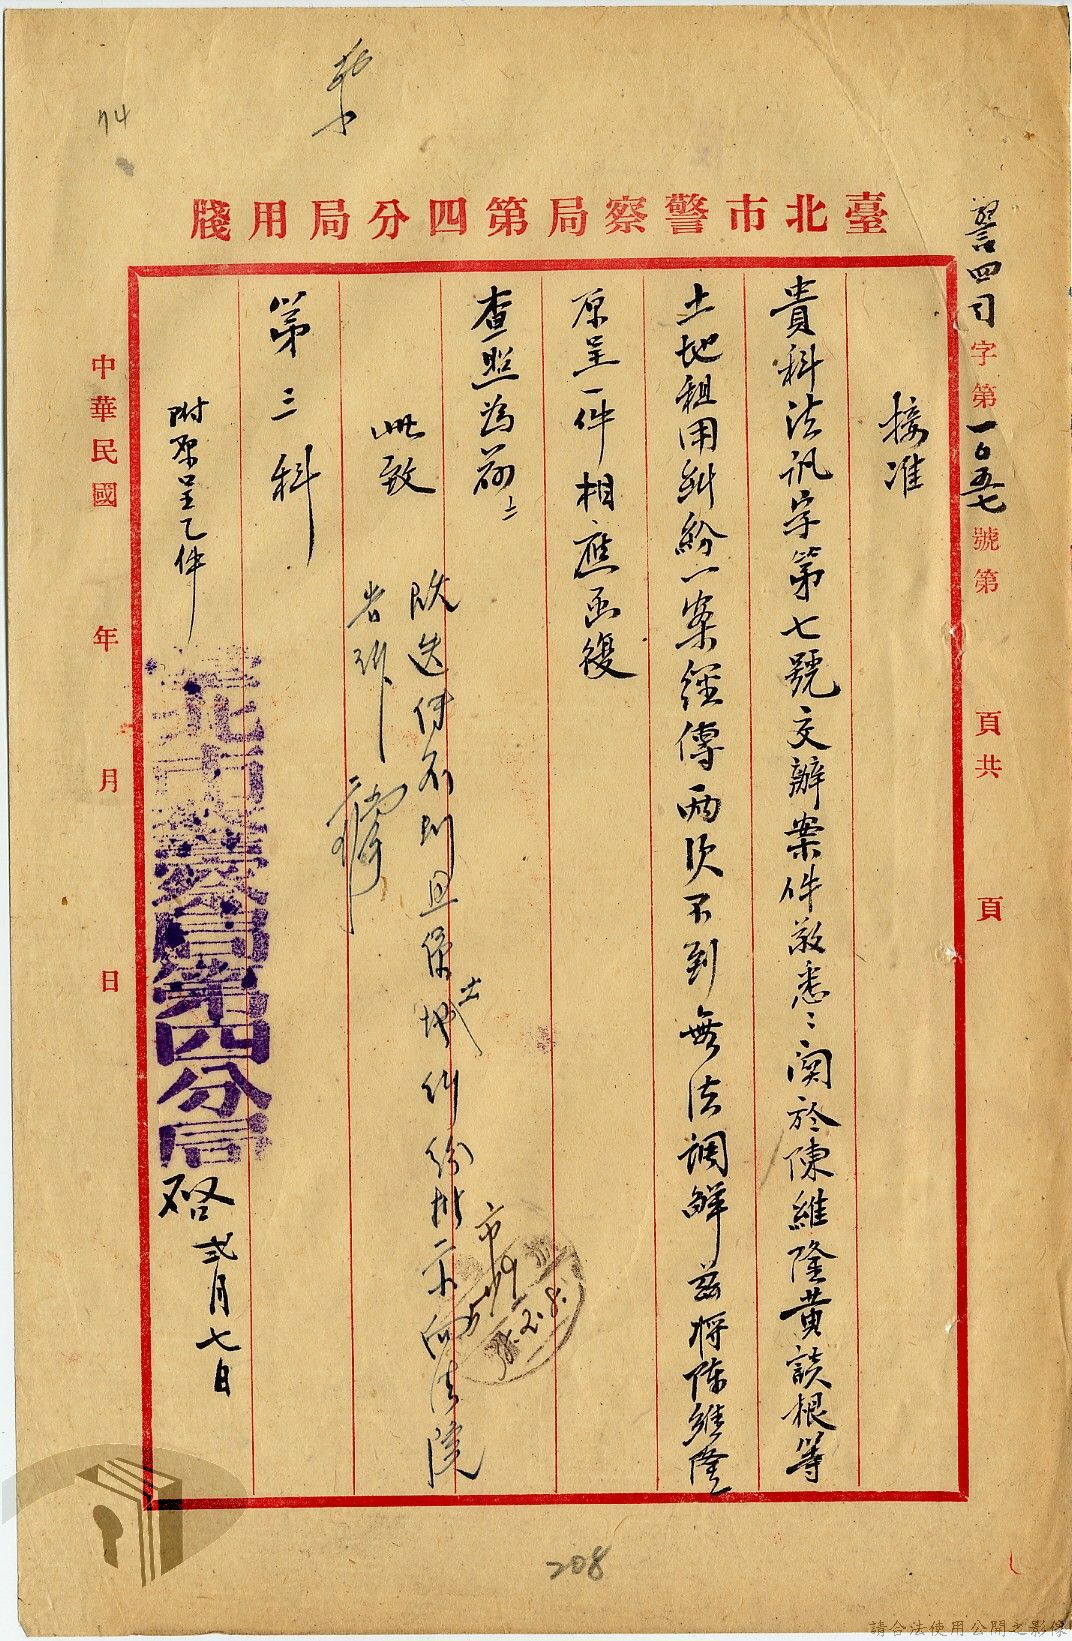 74
臺北市警察局第四分局用牋
警四司字第一〇五七號第 頁共 頁
接准
貴科法訊字第七號交辦案件敬悉：関於陳維隆黄談根等
土地租用糾紛一案經傳兩次不到無法調解兹將陳維隆
原呈一件相應函復
查照為荷
此致
第三科
附原呈乙件
既迭傳不到且係土地糾紛批示向法院
市
38.2.8.
臺北市警察局第四分局
啓 弍月七日
中華民國 年 月 日
208
請合法使用公開之影像